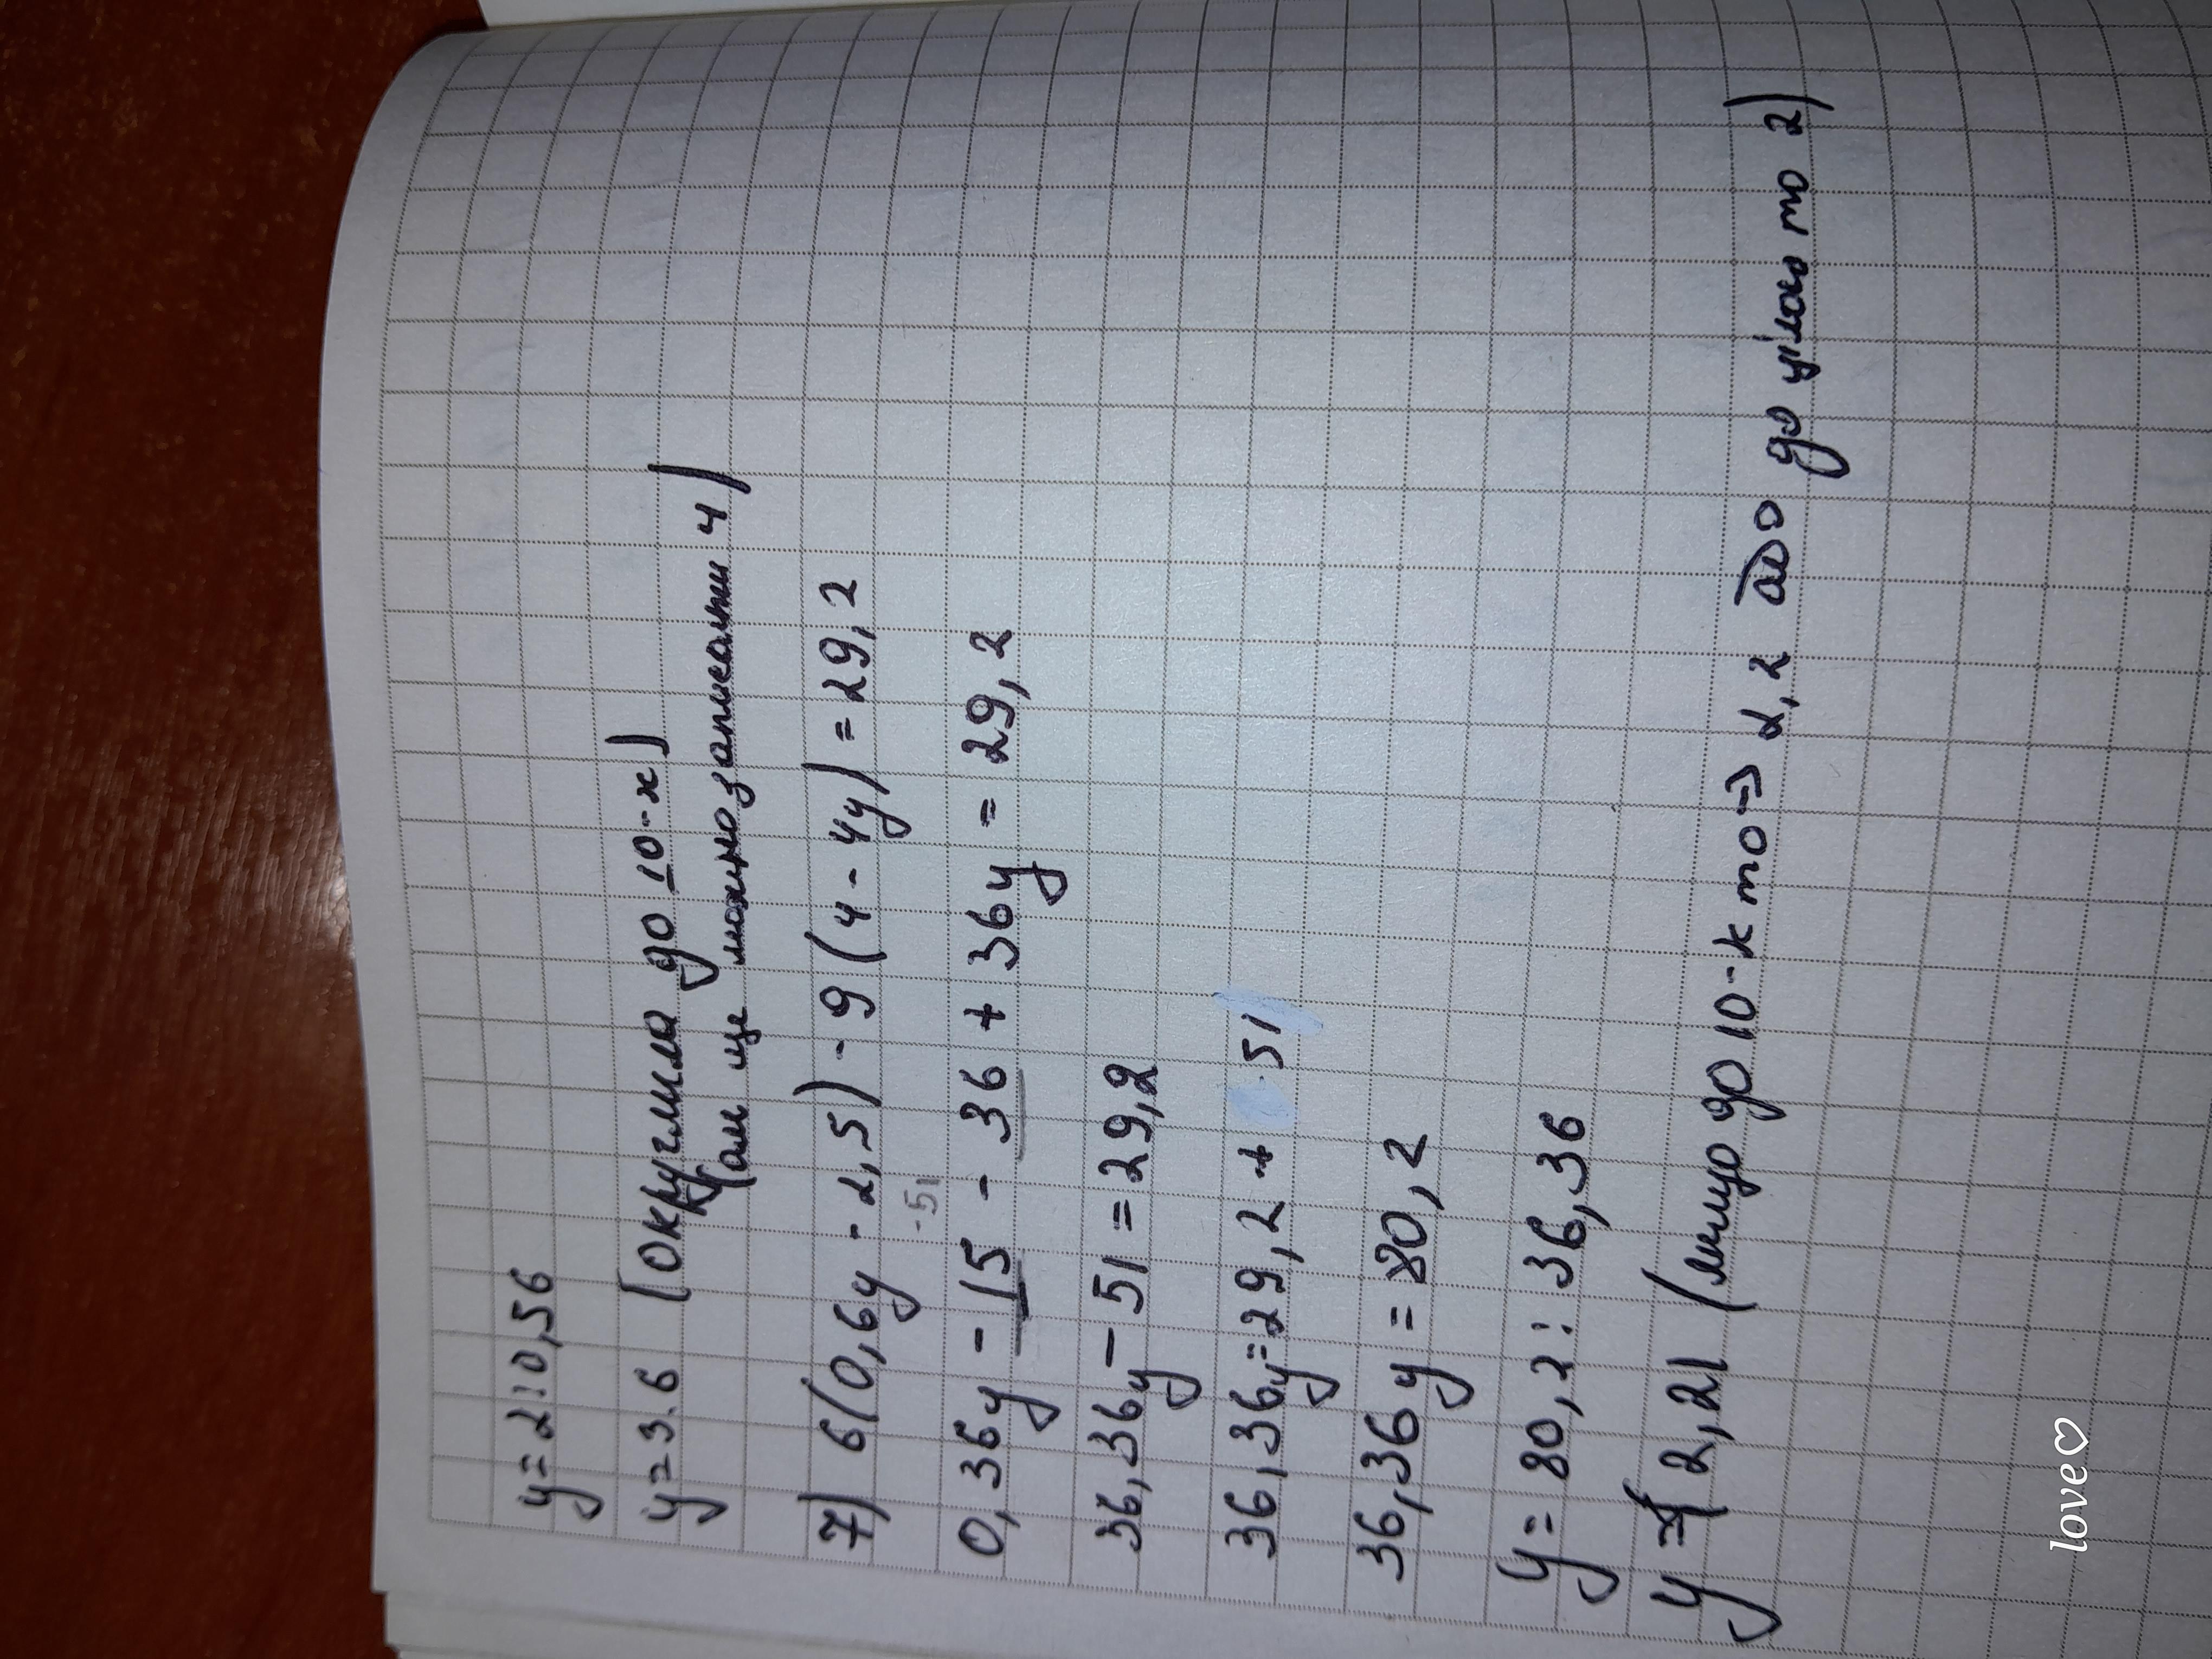 y = 2:0,56
y = 3.6 (округлила до 10-х)
(але ще можно записати 4)
7) 6(0,6y - 2,5) - 9(4 - 4y) = 29,2
-51
0,36y - 15 - 36 + 36y = 29,2
36,36y - 51 = 29,2
36,36y = 29,2 + 51
36,36y = 80,2
y = 80,2 : 36,36
y = 2,21 (якщо до 10-х то => 2,2 або до цілого то 2)
love♡